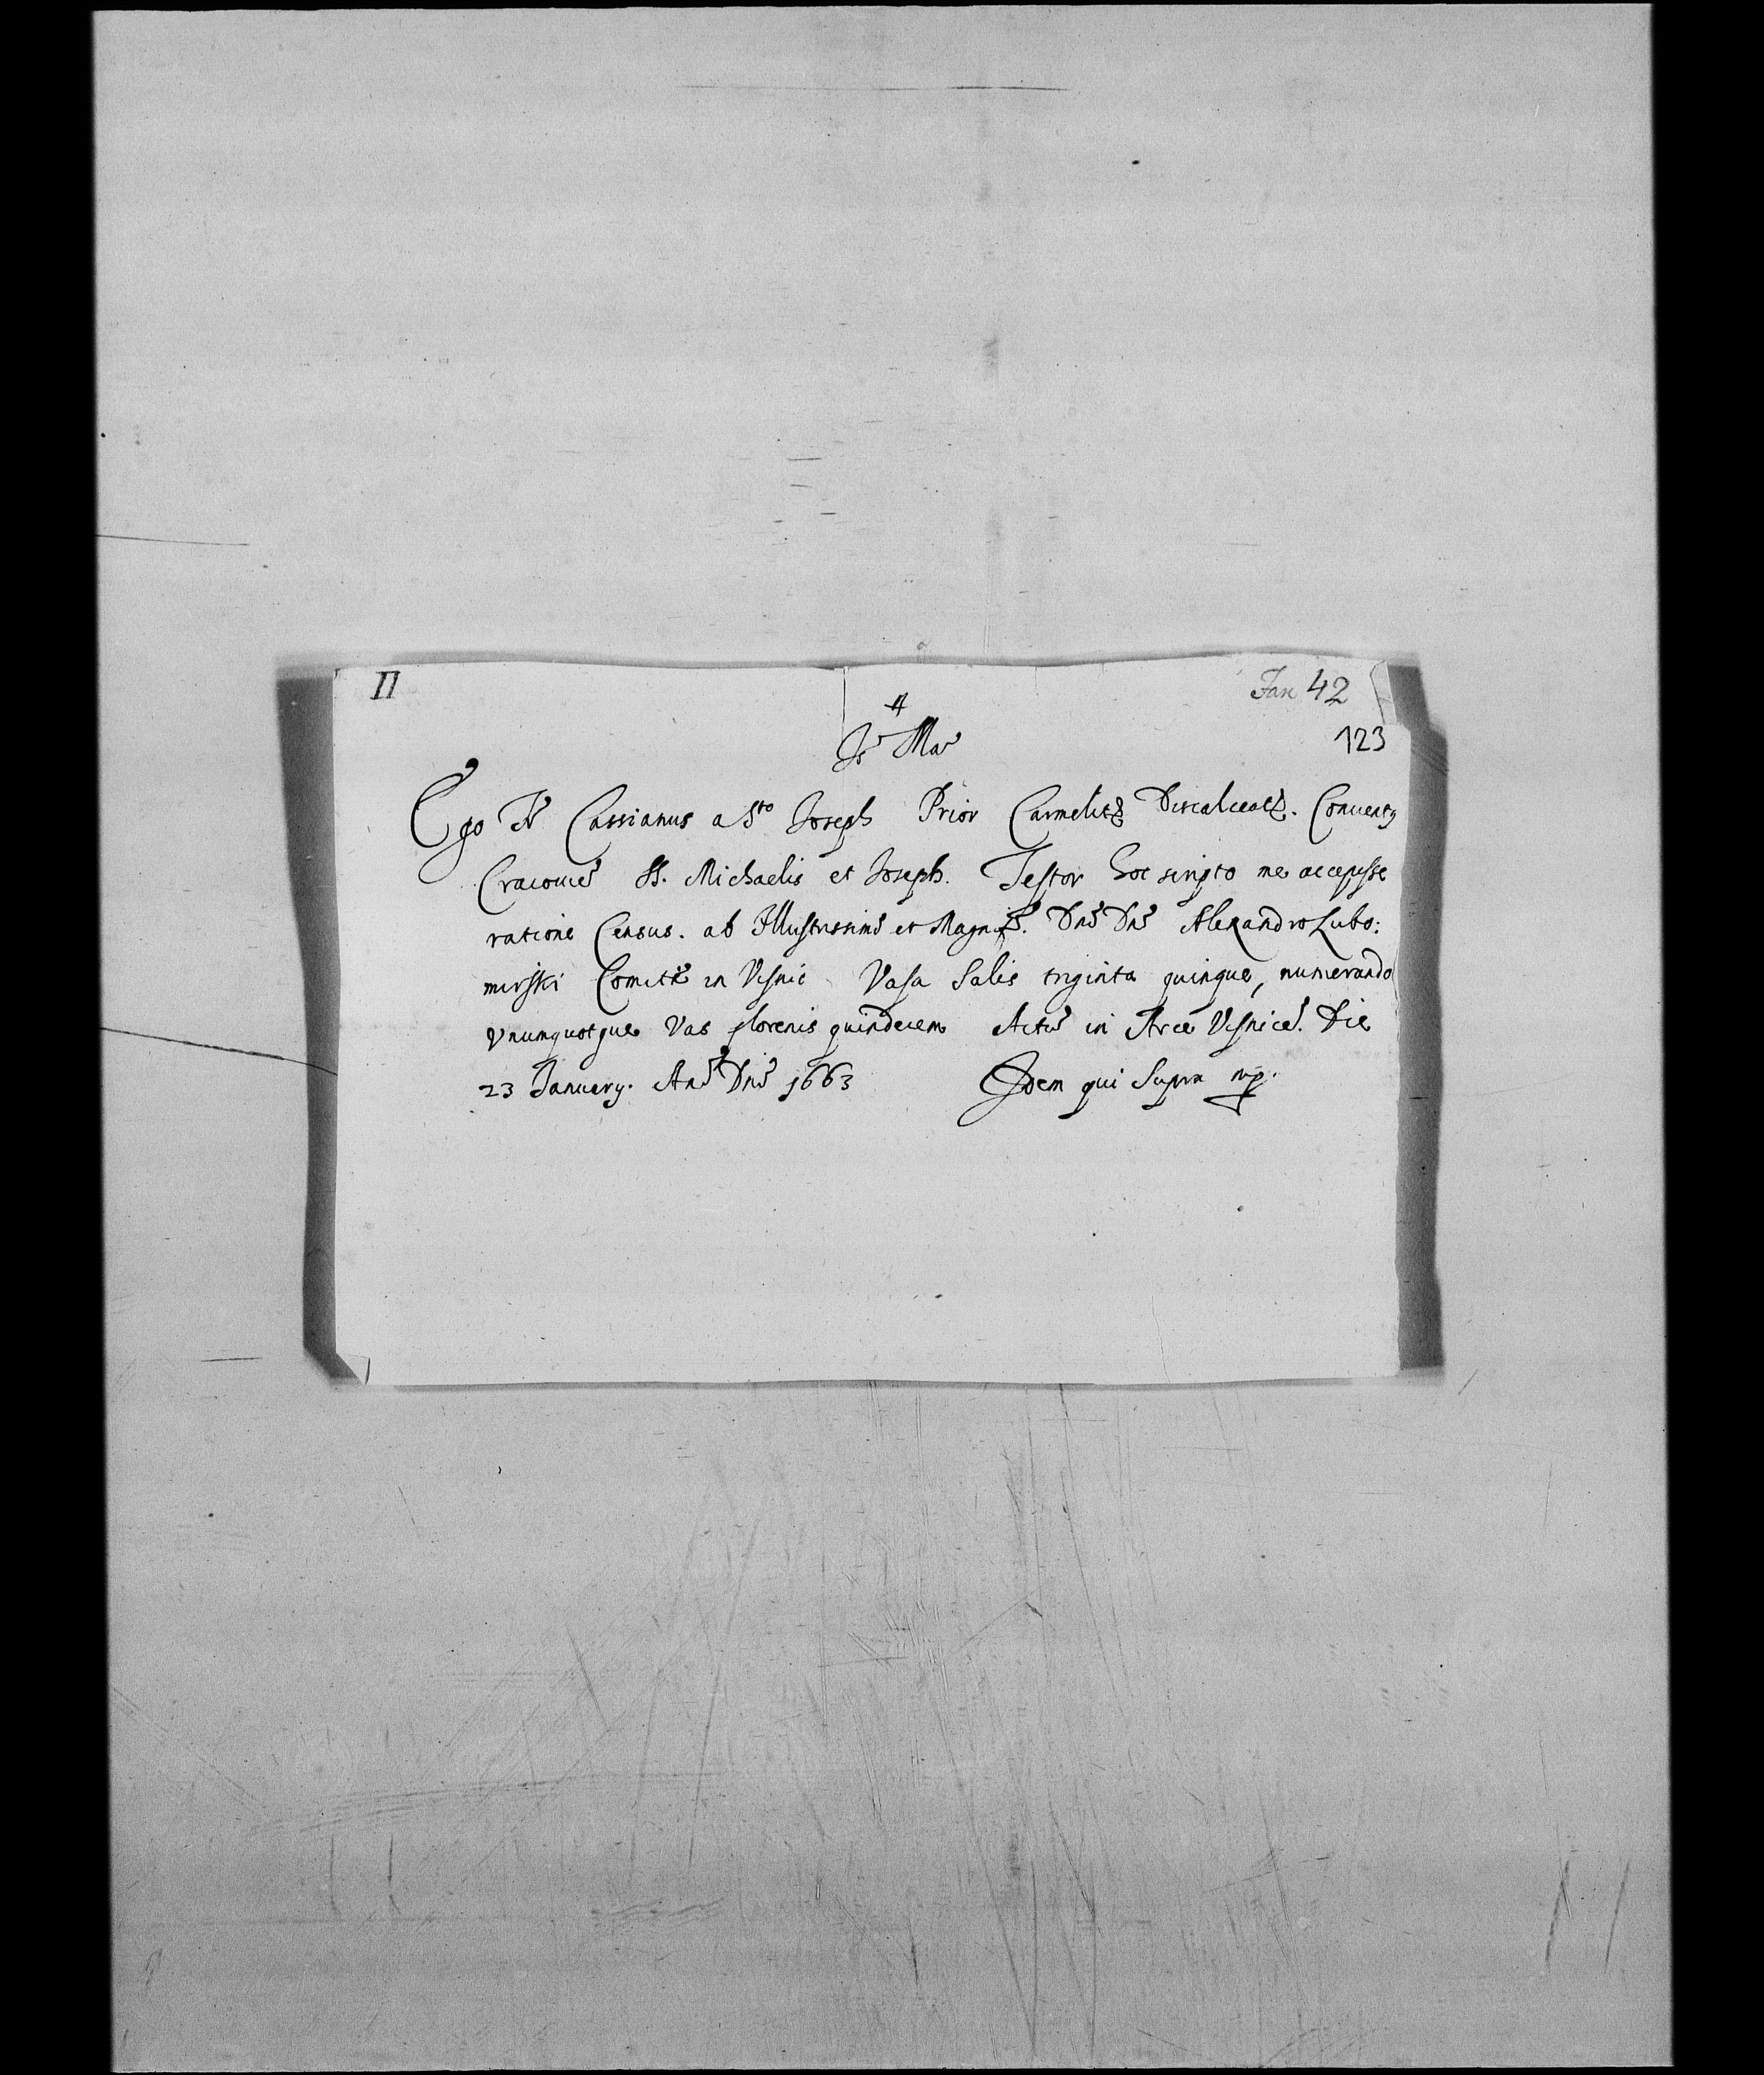 II
Fasc 42
123
Js Mar
Ego Fr Cassianus a Sto Joseph Prior Carmelit. Discalceat. Conuentus
Cracouien SS. Michaelis et Joseph. Testor hoc scripto me accepisse
ratione Census. ab Illustrissimo et Magnif. Dno Dno Alexandro Lubo:
mirski Comite in Visnic Vasa Salis triginta quinque, numerando
vnumquotque Vas florenis quindecem Actu in Arce Visnice. Die
23 January. Ano Dni 1663 Idem qui Supra mp.